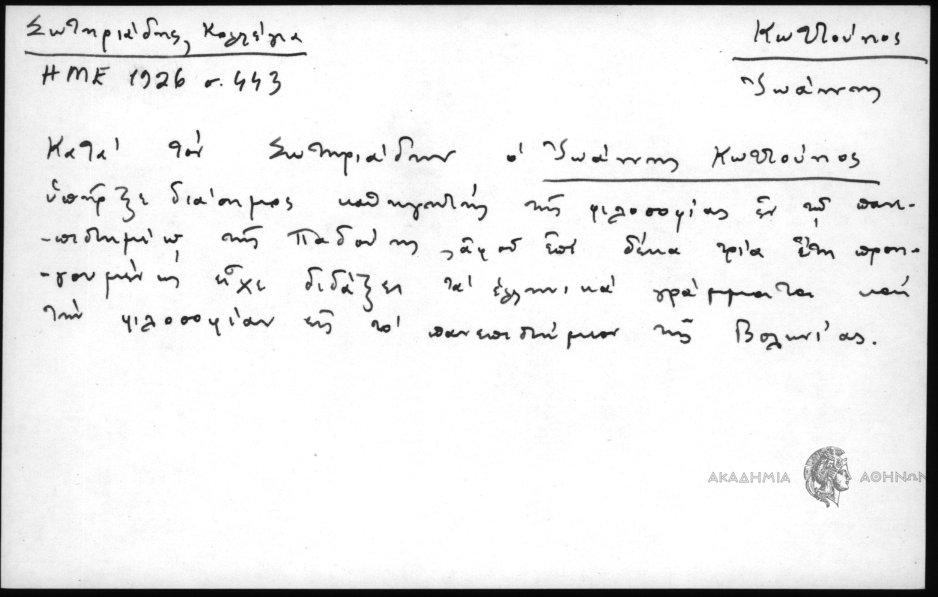 Σωτηριάδης, Κολλέγια
Κωττούνος
ΗΜΕ 1926 σ. 443
Ἰωάννης
Κατὰ τὸν Σωτηριάδην ὁ Ἰωάννης Κωττούνος
ὑπῆρξε διάσημος καθηγητὴς τῆς φιλοσοφίας ἐν τῷ παν-
-επιστημίῳ τῆς Παδούης, ἀφοῦ ἐπὶ δέκα τρία ἔτη προη-
-γουμένως εἶχε διδάξει τὰ ἑλληνικὰ γράμματα καὶ
τὴν φιλοσοφίαν εἰς τὸ πανεπιστήμιον τῆς Βολωνίας.
ΑΚΑΔΗΜΙΑ ΑΘΗΝΩΝ